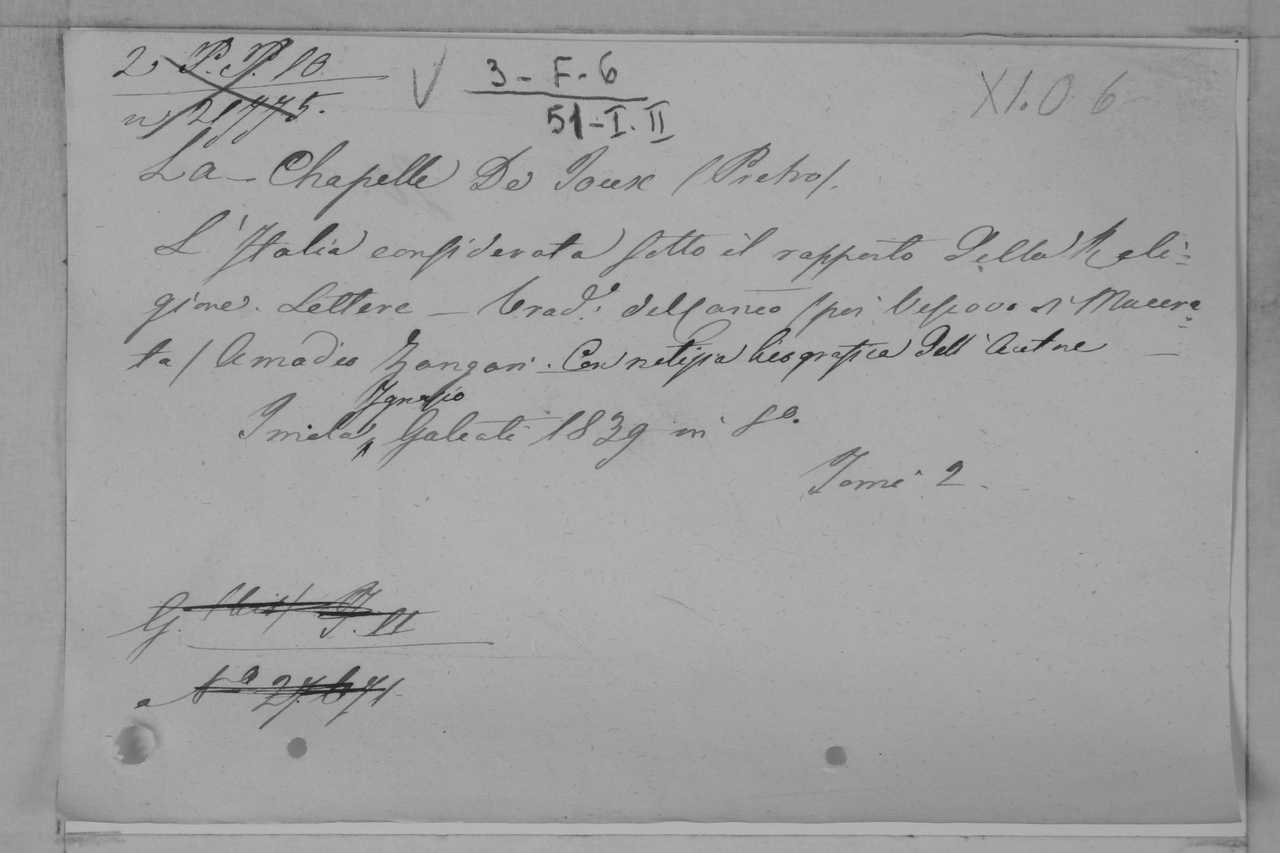 2 P. P. 10
n 21775.
V 3 - F. 6
51 - I. II
XI. O. 6
La - Chapelle De Joux (Pietro).
L'Italia considerata sotto il rapporto della Reli-
gione. Lettere - Trad.e del (poi Vescovo di Macera-
ta) Amadio Zangari. Con notizia biografica dell'Autore
Ignazio
Imola, Galeati 1839 in 8o.
Tomi 2.
G. II
a No 27.671